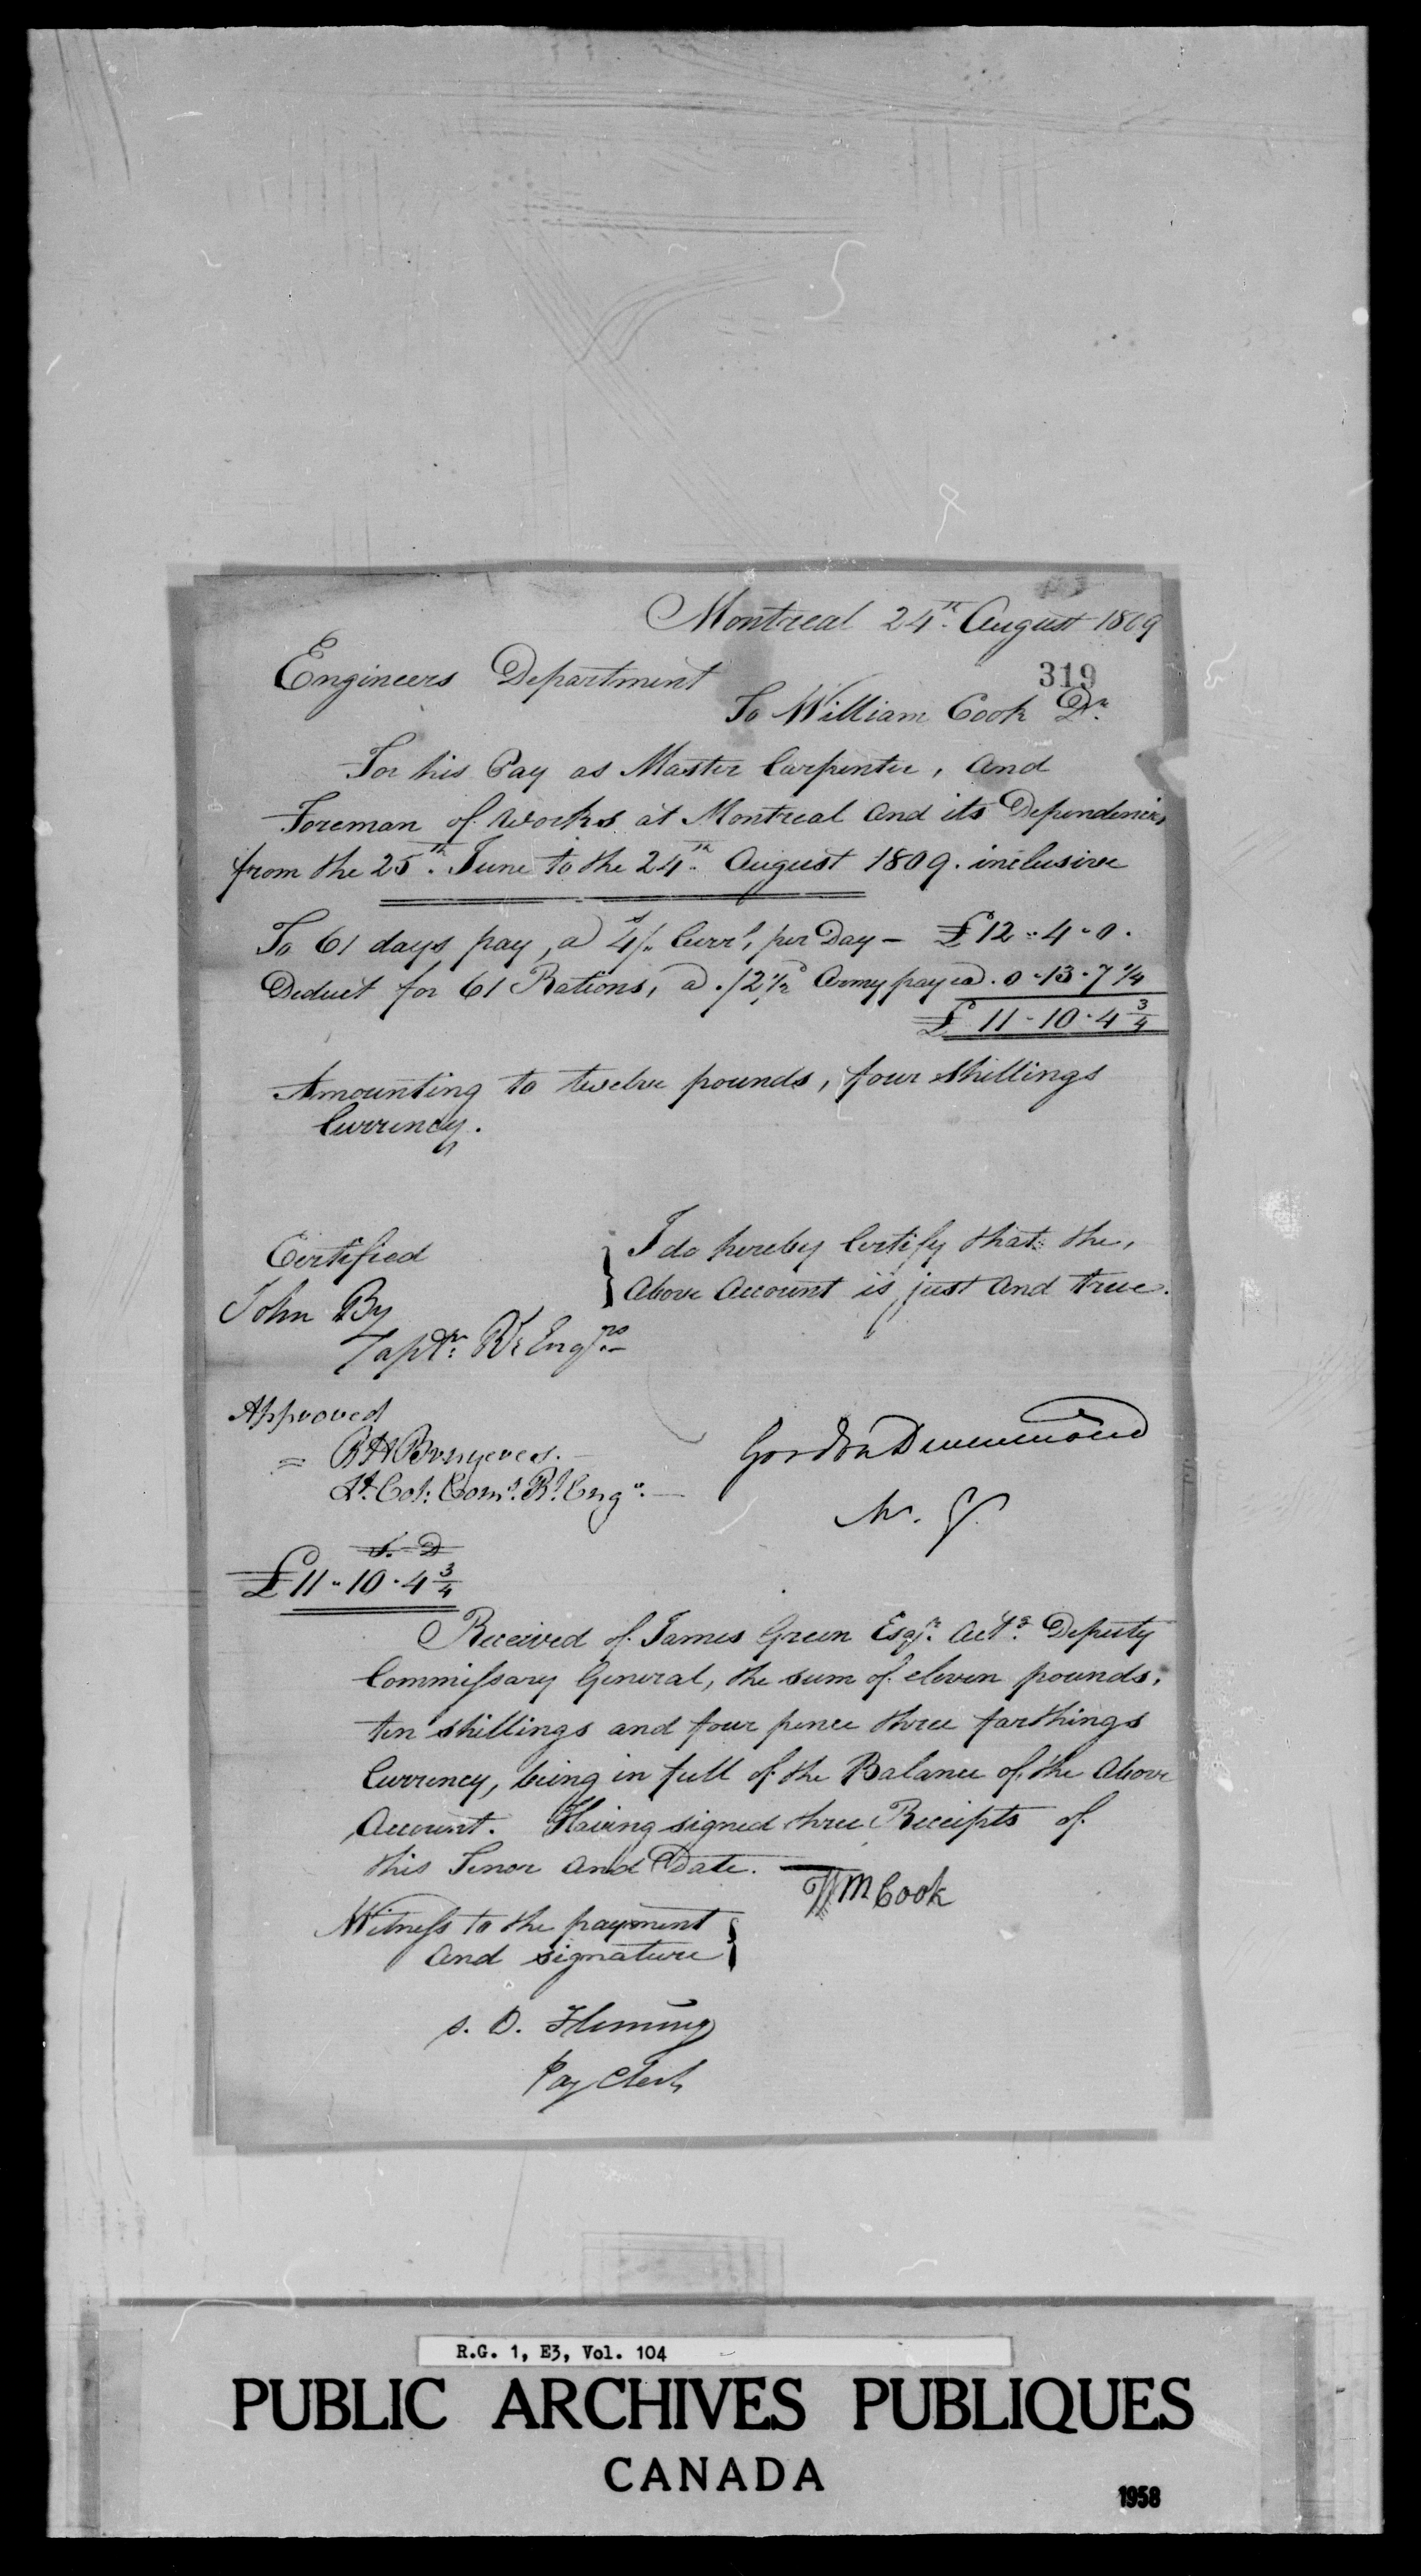 Montreal 24th. August 1809
319
Engineers Department
To William Cook Dr.
For his Pay as Master Carpenter, and
Foreman of Works at Montreal and its Dependencies
from the 25th. June to the 24th. August 1809. inclusive
To 61 days pay, a 4s/. Curry, per Day — £12 " 4 " 0 .
Deduct for 61 Rations, a ./2½d Army pay is . 0 - 13 - 7 ¼
£ 11 - 10 - 4 ¾
Amounting to twelve pounds, four shillings
Currency.
Certified
I do hereby Certify that the,
above Account is just and true.
John By
Captn. Rl Engrs
Approved
= R H Bruyeres. —
Lt. Col: Comg. Rl. Engrs. —
Gordon Drummond
M. G.
S. D
£ 11 " 10 - 4 ¾
Received of James Green Esqr. Actg. Deputy
Commissary General, the sum of eleven pounds,
ten shillings and four pence three farthings
Currency, being in full of the Balance of the above
Account. Having signed three Receipts of
this Tenor and Date. —
Wm Cook
Witness to the payment
and signature
S. D. Fleming
Pay Clerk
R.G. 1, E3, Vol. 104
PUBLIC ARCHIVES PUBLIQUES
CANADA
1958